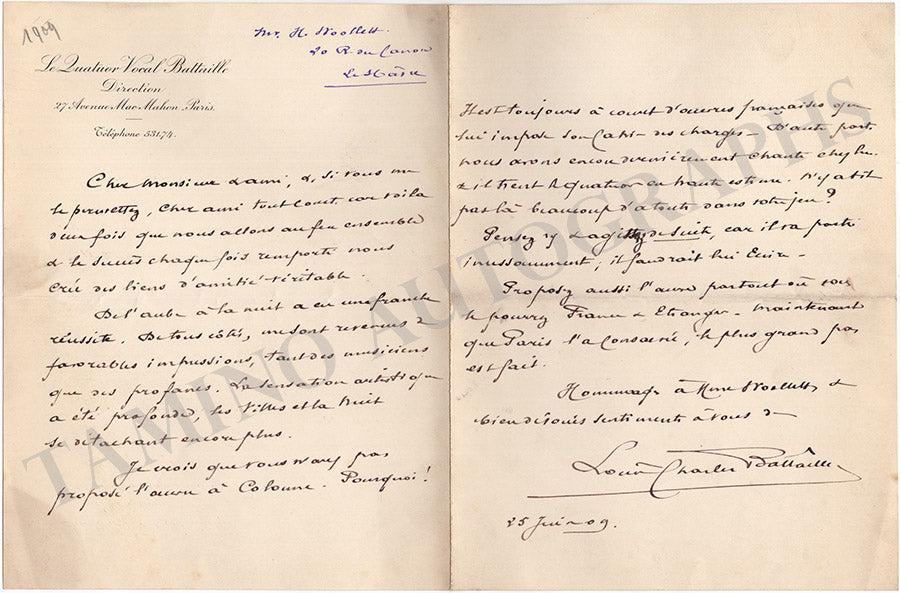 1909
Mr. H. Woollett
20 R. du Canon
Le Hâvre
Le Quatuor Vocal Battaille
Direction
27 Avenue Mac-Mahon. Paris.
Téléphone 531.74.
Cher Monsieur & ami, &, si vous me
le permettez, cher ami tout court car voila
deux fois que nous allons au feu ensemble
& le succès chaque fois remporté nous
crée des liens d'amitié véritable.
De l'aube à la nuit a eu une franche
réussite. De tous côtés, me sont revenues de
favorables impressions, tant des musiciens
que des profanes. La sensation artistique
a été profonde, les Villes et la Nuit
se détachant encore plus.
Je crois que vous n'avez pas
proposé l'œuvre à Colonne. Pourquoi!
Il est toujours à court d'œuvres françaises que
lui impose son Cahier des charges. D'autre part
nous avons encore dernièrement chanté chez lui
& il tient le quatuor en haute estime. N'y a t il
pas là beaucoup d'atouts dans votre jeu?
Pensez y & agissez de suite, car il va partir
incessamment; il faudrait lui Ecrire -
Proposez aussi l'œuvre partout où vous
le pourrez France & Etranger - Maintenant
que Paris l'a consacrée, le plus grand pas
est fait.
Hommages à Mme Woollett &
bien dévoués sentiments à vous de
Louis Charles Battaille
25 Juin 09.
TAMINO AUTOGRAPHS